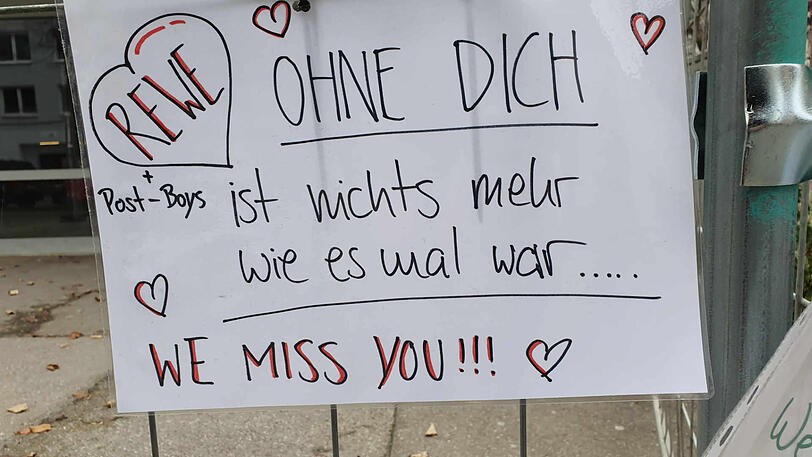 REWE
+
Post-Boys
OHNE DICH
ist nichts mehr
wie es mal war.....
WE MISS YOU!!!
We